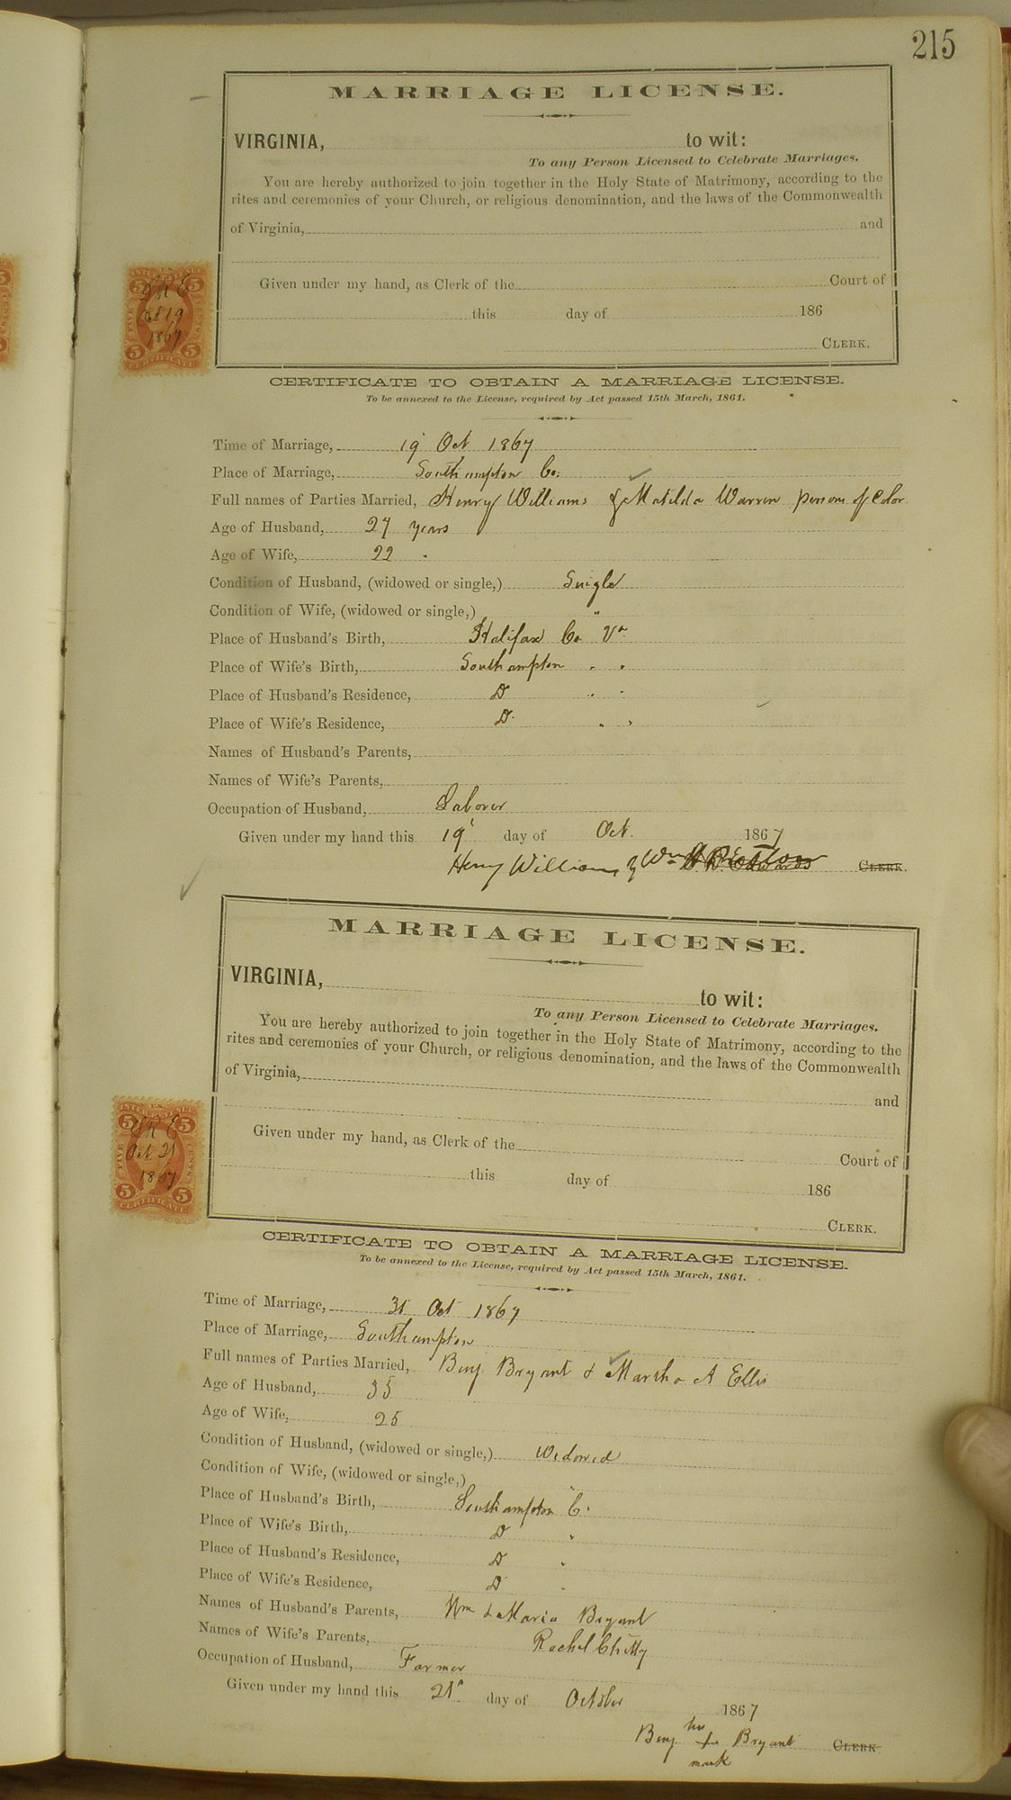 215
MARRIAGE LICENSE.
VIRGINIA, to wit:
To any Person Licensed to Celebrate Marriages.
You are hereby authorized to join together in the Holy State of Matrimony, according to the
rites and ceremonies of your Church, or religious denomination, and the laws of the Commonwealth
of Virginia, and
Given under my hand, as Clerk of the Court of
this day of 186
CLERK.
5 5
1867
5 5
CERTIFICATE
CERTIFICATE TO OBTAIN A MARRIAGE LICENSE.
To be annexed to the License, required by Act passed 15th March, 1861.
Time of Marriage, 19 Oct 1867
Place of Marriage, Southampton Co.
Full names of Parties Married, Henry Williams & Matilda Warren persons of Color
Age of Husband, 27 years
Age of Wife, 22 "
Condition of Husband, (widowed or single,) Single
Condition of Wife, (widowed or single,) "
Place of Husband's Birth, Halifax Co Va
Place of Wife's Birth, Southampton " "
Place of Husband's Residence, D " "
Place of Wife's Residence, D " "
Names of Husband's Parents,
Names of Wife's Parents,
Occupation of Husband, Laborer
Given under my hand this 19 day of Oct. 1867
Henry Williams CLERK.
MARRIAGE LICENSE.
VIRGINIA, to wit:
To any Person Licensed to Celebrate Marriages.
You are hereby authorized to join together in the Holy State of Matrimony, according to the
rites and ceremonies of your Church, or religious denomination, and the laws of the Commonwealth
of Virginia, and
Given under my hand, as Clerk of the Court of
this day of 186
CLERK.
5 5
Oct 21
1867
5 5
CERTIFICATE
CERTIFICATE TO OBTAIN A MARRIAGE LICENSE.
To be annexed to the License, required by Act passed 15th March, 1861.
Time of Marriage, 31 Oct 1867
Place of Marriage, Southampton
Full names of Parties Married, Benj Bryant & Martha A Ellis
Age of Husband, 35
Age of Wife, 25
Condition of Husband, (widowed or single,) Widowed
Condition of Wife, (widowed or single,) "
Place of Husband's Birth, Southampton C.
Place of Wife's Birth, D "
Place of Husband's Residence, D "
Place of Wife's Residence, D "
Names of Husband's Parents, Wm & Maria Bryant
Names of Wife's Parents, Rachel Chitty
Occupation of Husband, Farmer
Given under my hand this 21 day of October 1867
his
Benj + Bryant CLERK.
mark